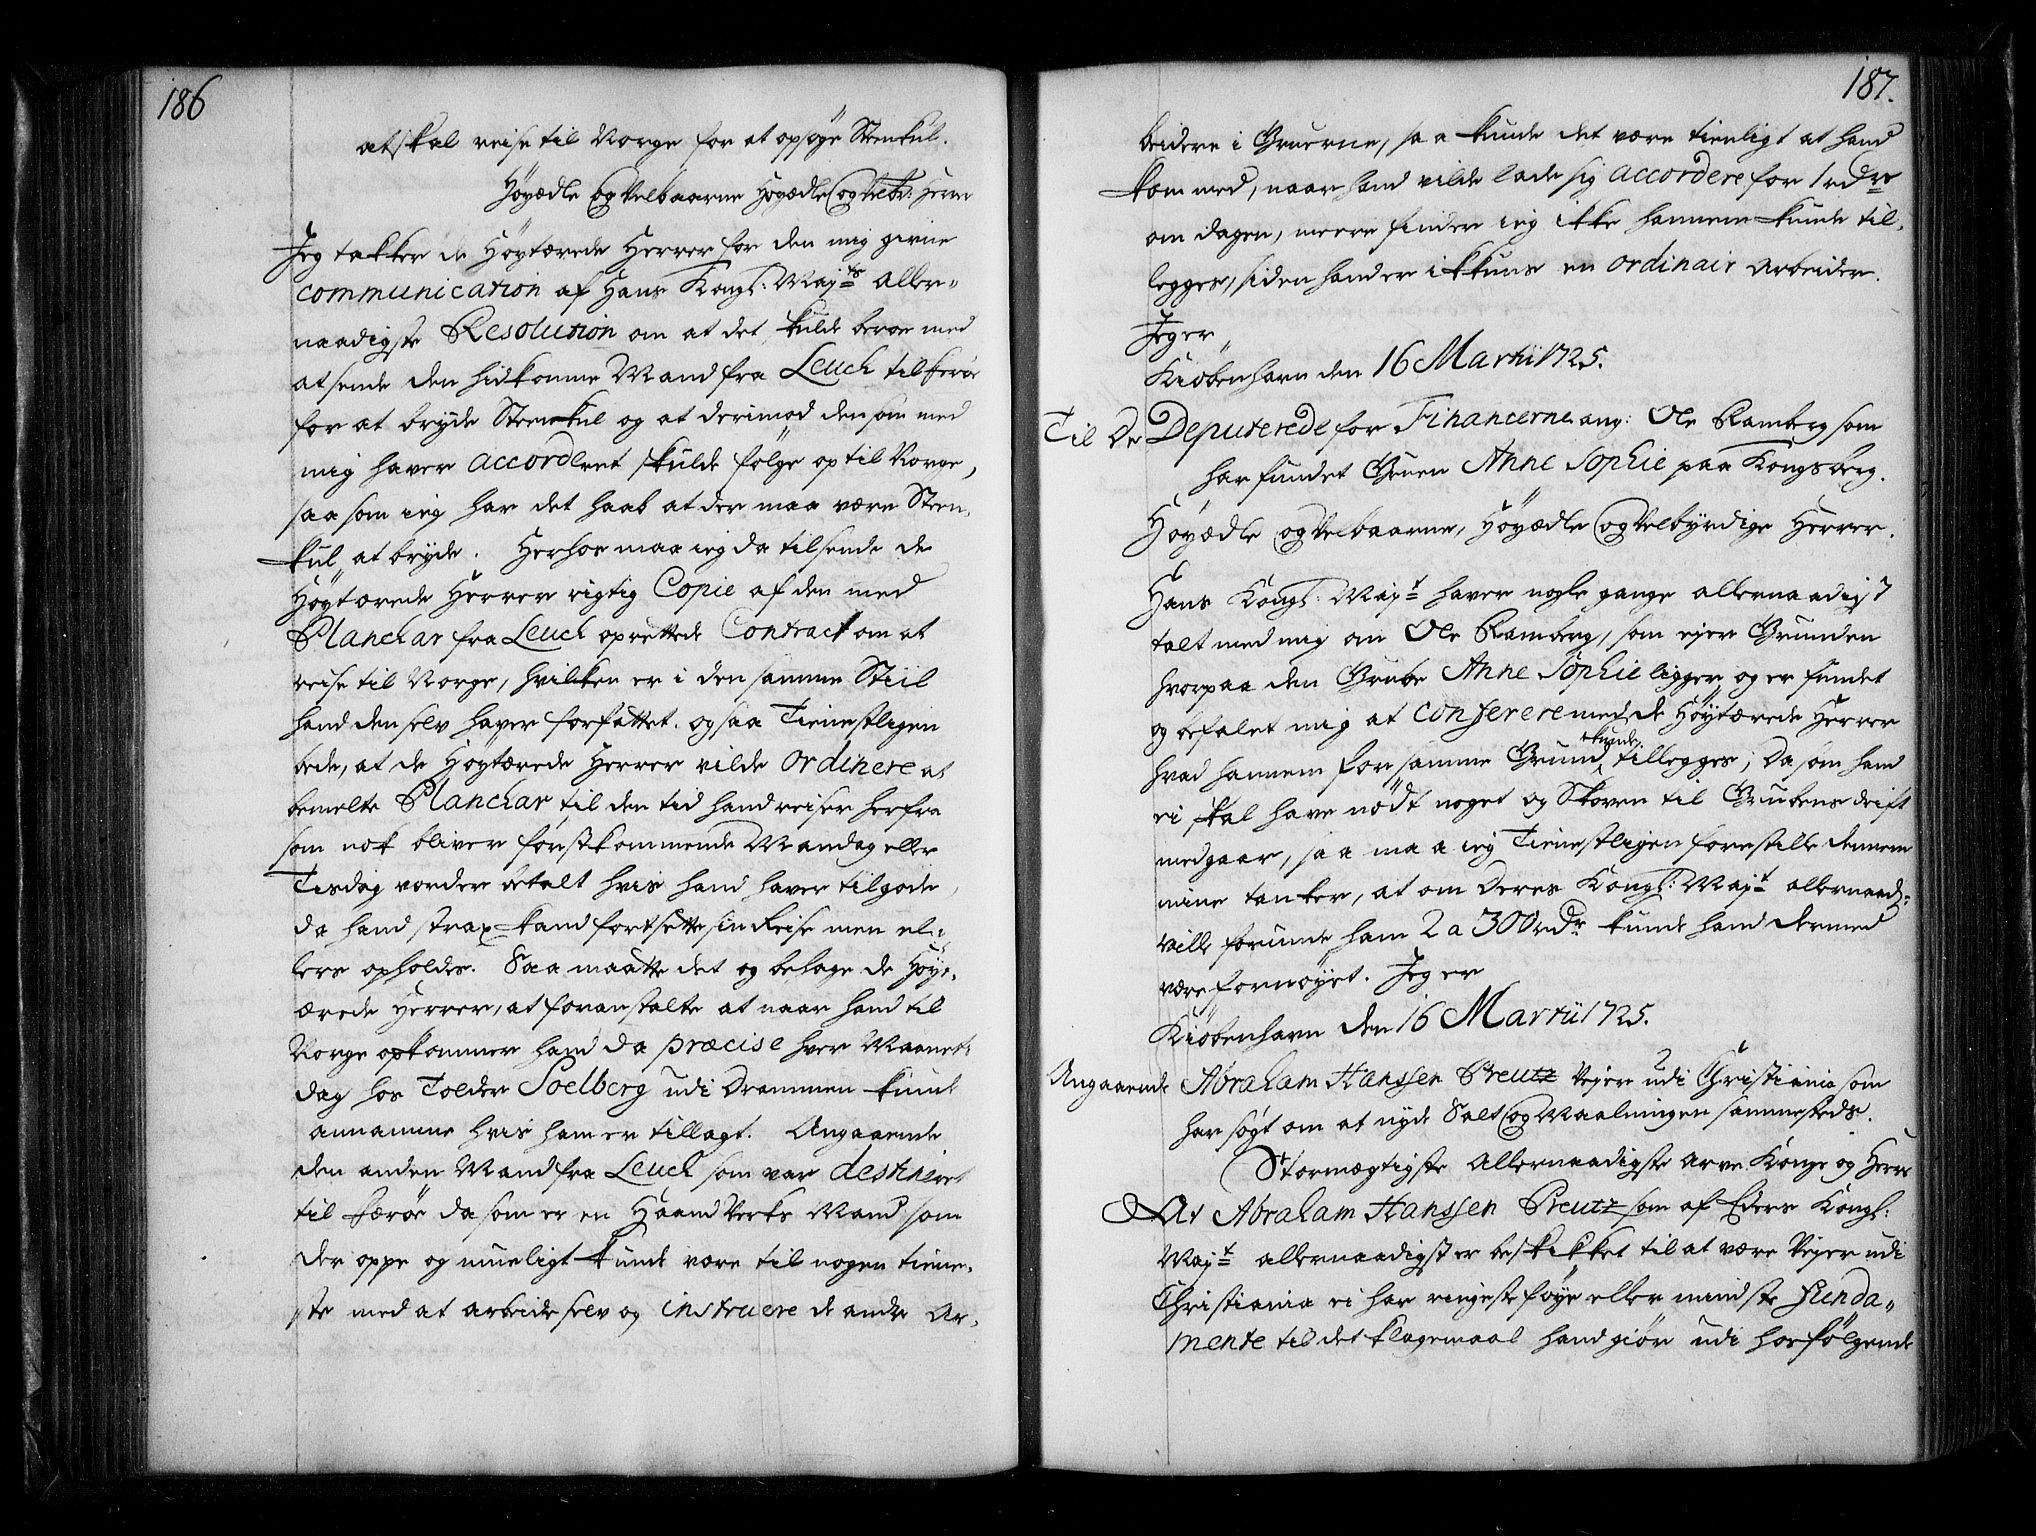 186
at skal reise til Norge for at opsøge Steenkul.
Høyædle og Velbaarne Høyædle og Velb: Herrer
Jeg takker de Høytærede Herrer for den mig givne
communication af Hans Kongl: Majts aller-
naadigste Resolution om at det skulde beroe med
at sende den hidkomne Mand fra Leuch til Ferøe
for at bryde Steenkul og at derimod den som med
mig haver accorderet skulde følge op til Norge,
saa som ieg har det haab at der maa være Steen-
kul at bryde. Herhos maa ieg da tilsende de
Høytærede Herrer rigtig Copie af den med
Planchar fra Leuch oprettede Contract om at
reise til Norge, hvilken er i den samme Stiil
hand den selv haver forfattet. og saa Tienestligen
bede, at de Høytærede Herrer vilde ordinere at
bemelte Planchar til den tid hand reiser herfra
som nok bliver førstkommende Mandag eller
Tisdag vorder betalt hvis hand haver tilgode,
da hand strax kand fortsette sin Reise men el-
lers opholdes. Saa maatte det og behage de Høyt-
ærede Herrer, at foranstalte at naar hand til
Norge opkommer hand da præcise hver Maanets
dag hos Tolder Soelberg udi Drammen kunde
annamme hvis ham er tillagt. Angaaende
den anden Mand fra Leuch som var destineret
til Færøe da som er en Haand Verks Mand som
der oppe og mueligt kunde være til nogen tiene-
ste med at arbeide selv og instruere de andre Ar-
187.
beidere i Gruerne, saa kunde det være tienligt at hand
kom med, naar hand vilde lade sig accordere for 1 rdr
om dagen, meere finder ieg ikke hannem kunde til-
legges, siden hand er ikkuns en ordinair Arbeider.
Jeg er
Kiøbenhavn den 16 Martii 1725.
Til De Deputerede for Financerne ang: Ole Ramberg som
har fundet Gruen Anne Sophie paa Kongsberg.
Høyædle og Velbaarne, Høyædle og Velbyrdige Herrer.
Hans Kongl: Majt haver nogle gange allernaadigst
talt med mig om Ole Ramberg, som ejer Grunden
hvorpaa den Grube Anne Sophie ligger og er fundet
og befalet mig at conferere med de Høytærede Herrer
kunde
hvad hannem for samme Grund tillegges; Da som hand
ei skal have nødt noget og Skoven til Grubens drift
medgaar, saa maa ieg Tienestligen forestille dennem
mine tanker, at om Deres Kongl: Majt allernaad:
ville forunde ham 2 a 300 rdr kunde hand dermed
være fornøyet. Jeg er
Kiøbenhavn den 16 Martii 1725.
Angaaende Abraham Hanssen Preutz Vejer udi Christiania som
har søgt om at nyde Salt og Maalningen sammesteds.
Stormægtigste Allernaadigste Arve Konge og Herre
At Abraham Hanssen Preutz som af Eders Kongl:
Majt allernaadigst er beskikket til at være Vejer udi
Christiania ei har ringeste føye eller mindste funda-
mente til det klagemaal hand giør udi hosfølgende